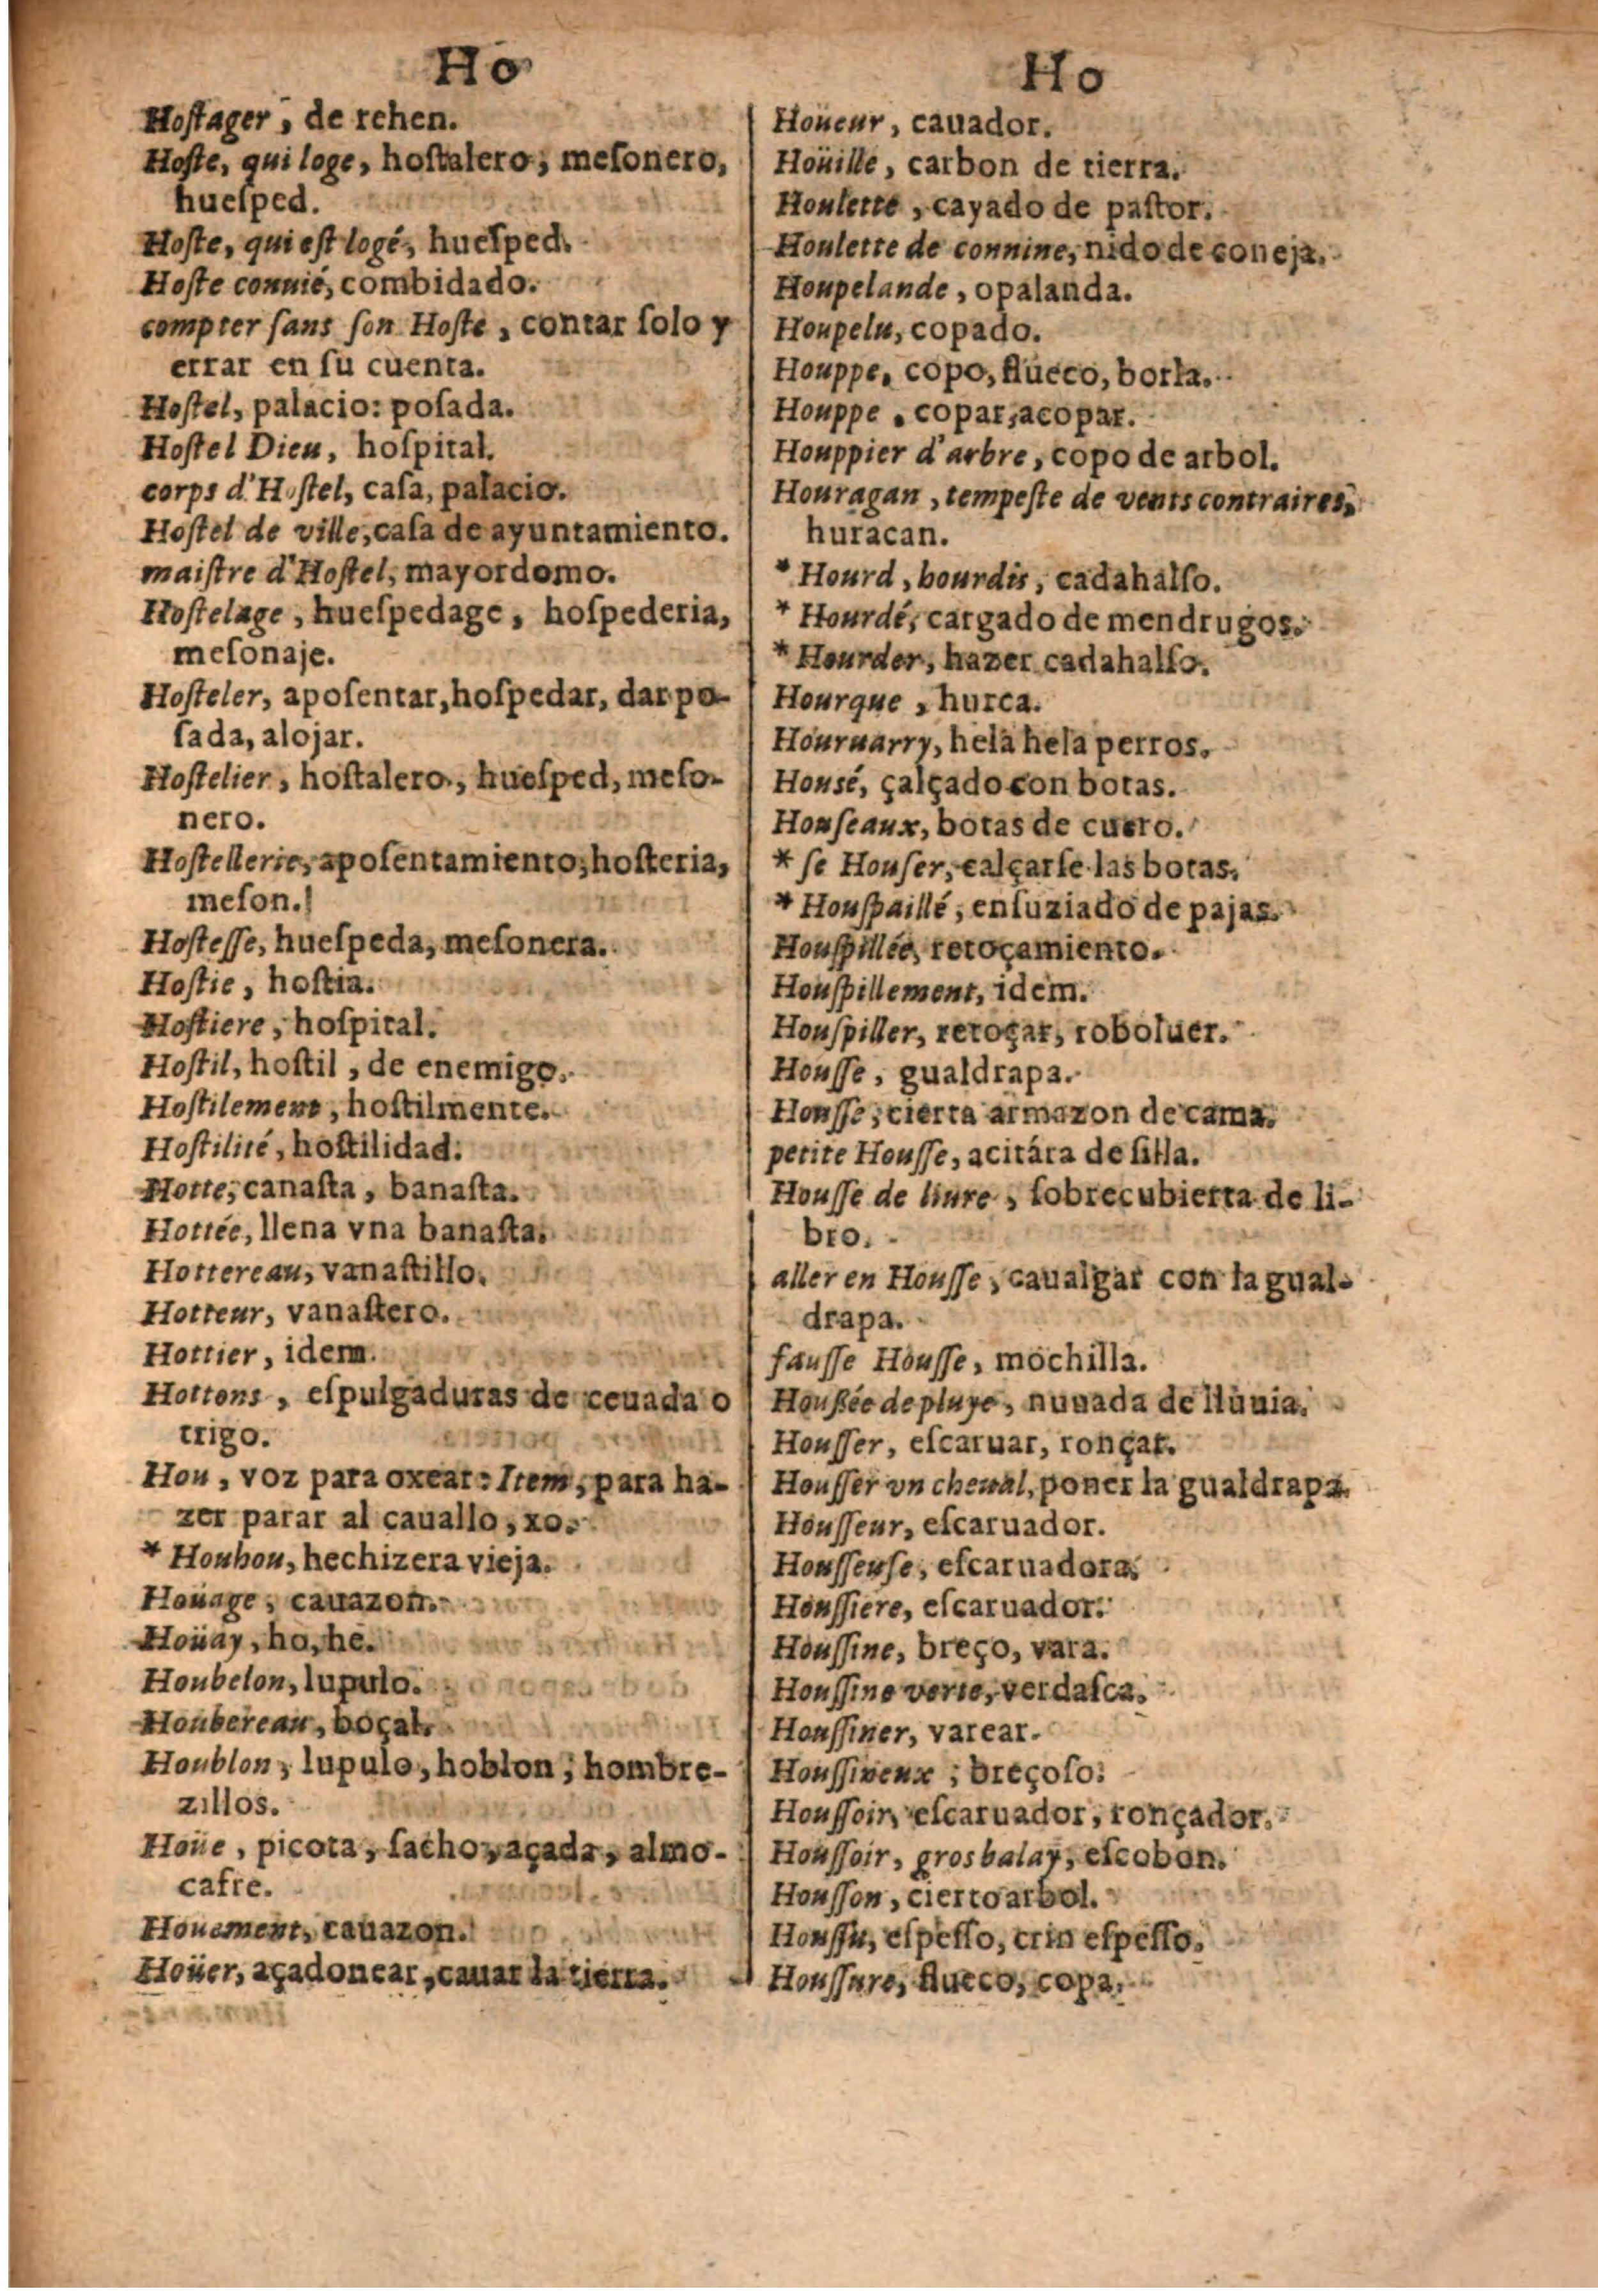 Ho
Hoſtager, de rehen.
Hoſte, qui loge, hoſtalero, meſonero,
hueſped.
Hoſte, qui eſt logé, hueſped.
Hoſte conuié, combidado.
compter ſans ſon Hoſte, contar ſolo y
errar en ſu cuenta.
Hoſtel, palacio: poſada.
Hoſtel Dieu, hoſpital.
corps d'Hoſtel, caſa, palacio.
Hoſtel de ville, caſa de ayuntamiento.
maiſtre d'Hoſtel, mayordomo.
Hoſtelage, hueſpedage, hoſpederia,
meſonaje.
Hoſteler, apoſentar, hoſpedar, dar po-
ſada, alojar.
Hoſtelier, hoſtalero, hueſped, meſo-
nero.
Hoſtellerie, apoſentamiento, hoſteria,
meſon.
Hoſteſſe, hueſpeda, meſonera.
Hoſtie, hoſtia.
Hoſtiere, hoſpital.
Hoſtil, hoſtil, de enemigo.
Hoſtilement, hoſtilmente.
Hoſtilité, hoſtilidad.
Hotte, canaſta, banaſta.
Hottée, llena vna banaſta.
Hottereau, vanaſtillo.
Hotteur, vanaſtero.
Hottier, idem.
Hottons, eſpulgaduras de ceuada o
trigo.
Hou, voz para oxear: Item, para ha-
zer parar al cauallo, xo.
* Houhou, hechizera vieja.
Hoüage, cauazon.
Hoüay, ho, he.
Houbelon, lupulo.
Houbereau, boçal.
Houblon, lupulo, hoblon, hombre-
zillos.
Hoüe, picota, ſacho, açada, almo-
cafre.
Houement, cauazon.
Hoüer, açadonear, cauar la tierra.
Ho
Hoüeur, cauador.
Hoüille, carbon de tierra.
Houlette, cayado de paſtor.
Houlette de connine, nido de coneja.
Houpelande, opalanda.
Houpelu, copado.
Houppe, copo, flueco, borla.
Houppe, copar, acopar.
Houppier d'arbre, copo de arbol.
Houragan, tempeſte de vents contraires,
huracan.
* Hourd, hourdis, cadahalſo.
* Hourdé, cargado de mendrugos.
* Hourder, hazer cadahalſo.
Hourque, hurca.
Houruarry, hela hela perros.
Housé, çalçado con botas.
Houſeaux, botas de cuero.
* ſe Houſer, calçarſe las botas.
* Houſpaillé, enſuziado de pajas.
Houſpillée, retoçamiento.
Houſpillement, idem.
Houſpiller, retoçar, roboluer.
Houſſe, gualdrapa.
Houſſe, cierta armazon de cama.
petite Houſſe, acitára de ſilla.
Houſſe de liure, ſobrecubierta de li-
bro.
aller en Houſſe, caualgar con la gual-
drapa.
fauſſe Houſſe, mochilla.
Houßée de pluye, nuuada de lluuia.
Houſſer, eſcaruar, ronçar.
Houſſer vn cheual, poner la gualdrapa.
Houſſeur, eſcaruador.
Houſſeuſe, eſcaruadora.
Houſſiere, eſcaruador.
Houſſine, breço, vara.
Houſſine verte, verdaſca.
Houſſiner, varear.
Houſſineux, breçoſo.
Houſſoir, eſcaruador, ronçador.
Houſſoir, gros balay, eſcobon.
Houſſon, cierto arbol.
Houſſu, eſpeſſo, crin eſpeſſo.
Houſſure, flueco, copa.